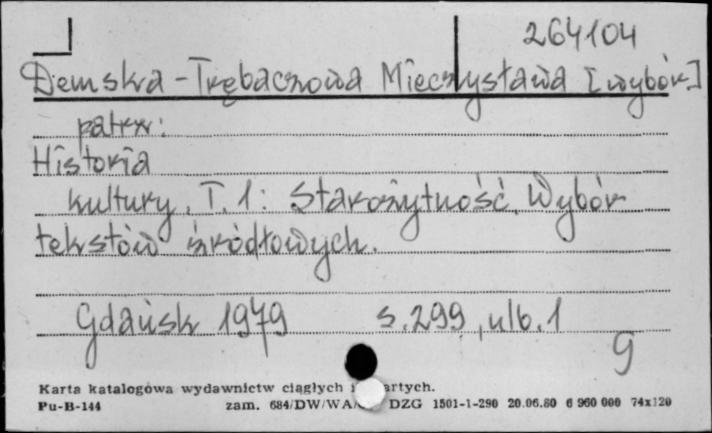 264104
Demska-Trębaczowa Mieczysława [wybór]
patrz:
Historia
kultury. T. 1: Starożytność. Wybór
tekstów źródłowych.
Gdańsk 1979 s. 299, ulb. 1
g
Karta katalogowa wydawnictw ciągłych i artych.
Pu-B-144 zam. 684/DW/WA/ DZG 1501-1-290 20.06.80 6 960 000 74x120